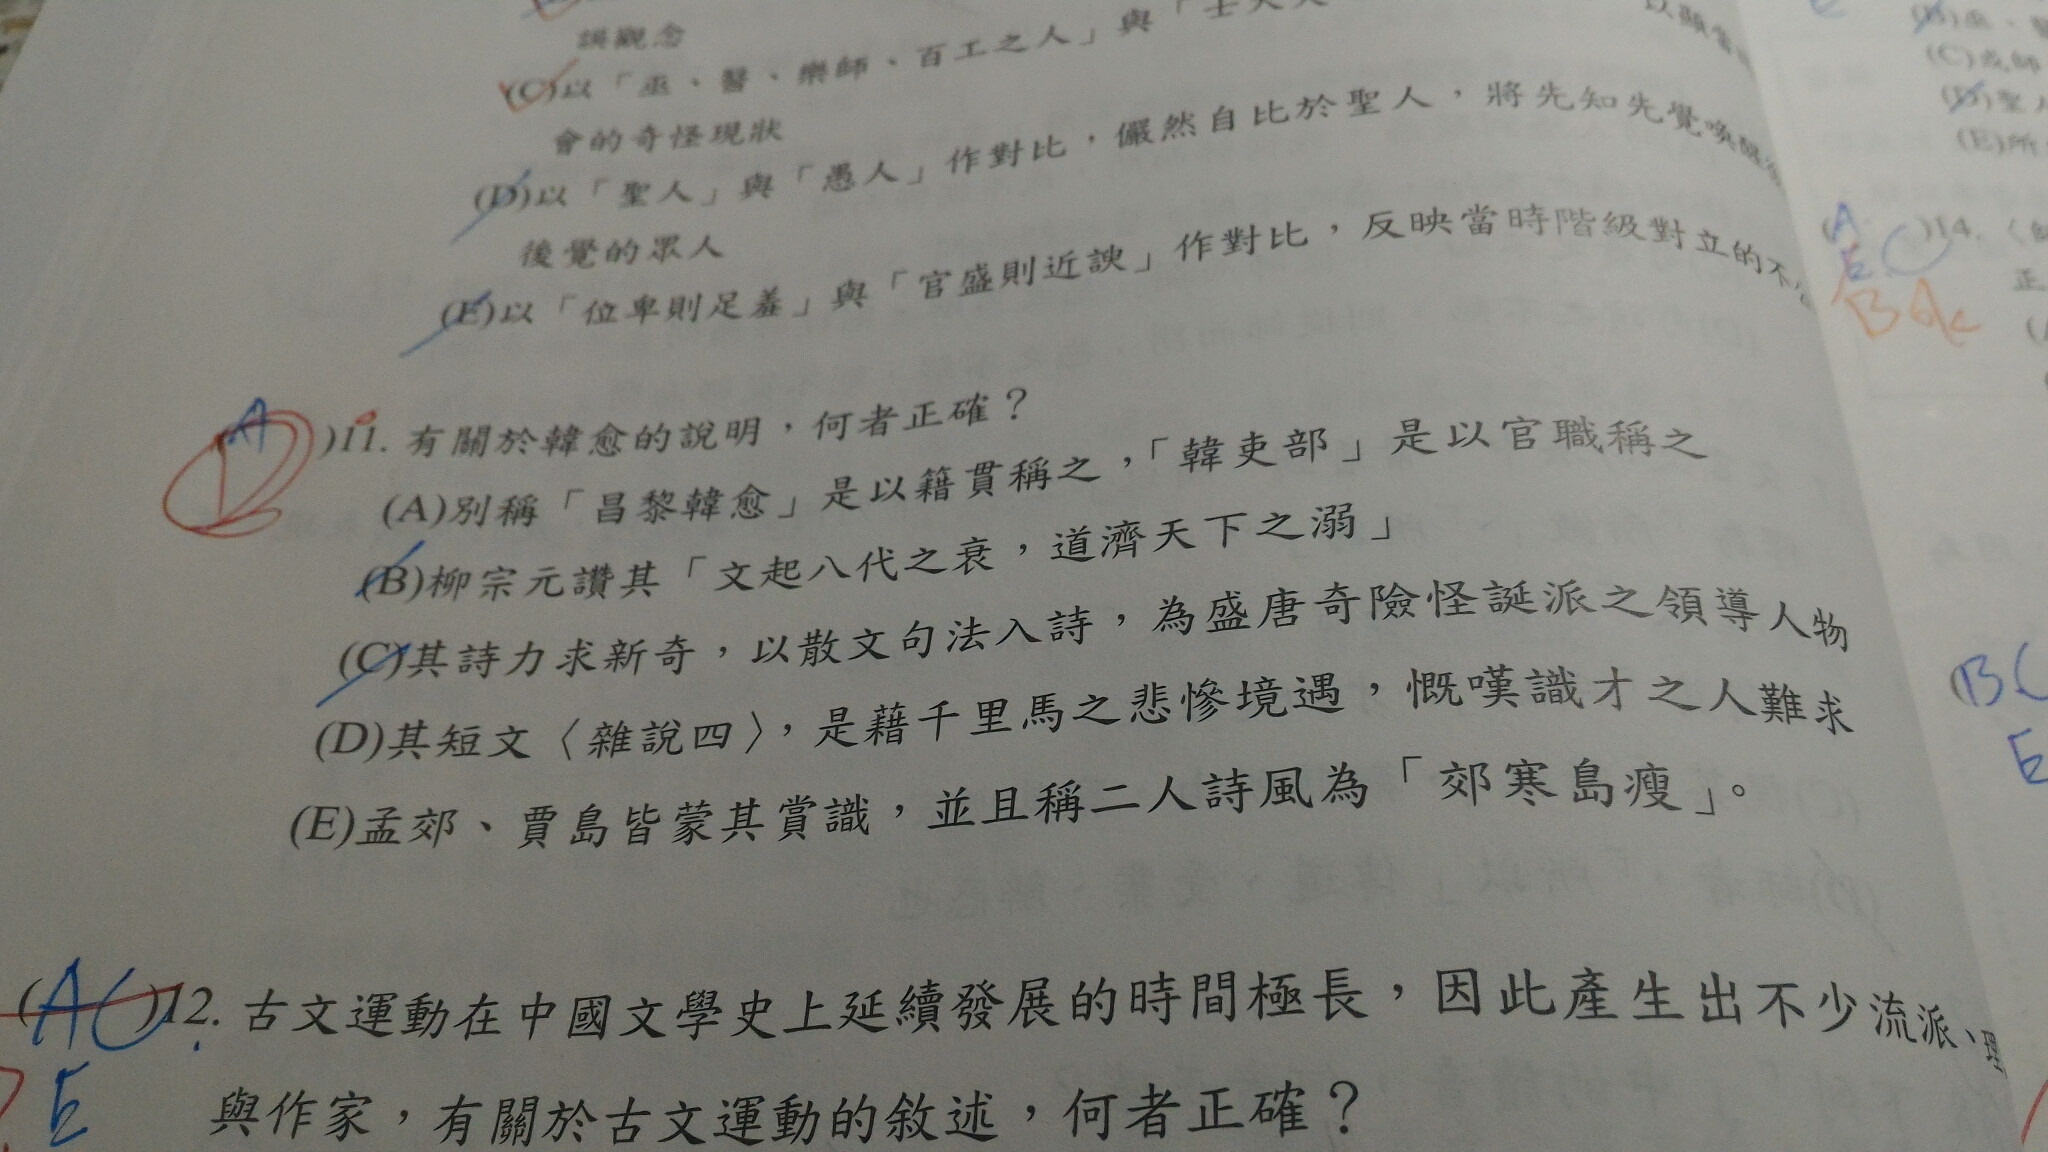 謂觀念
(C)以「巫、醫、樂師、百工之人」與「士大夫
以顯當
會的奇怪現狀
(D)以「聖人」與「愚人」作對比，儼然自比於聖人，將先知先覺喚醒
後覺的眾人
(E)以「位卑則足羞」與「官盛則近諛」作對比，反映當時階級對立的不
(A D)11. 有關於韓愈的說明，何者正確？
(A)別稱「昌黎韓愈」是以籍貫稱之，「韓吏部」是以官職稱之
(B)柳宗元讚其「文起八代之衰，道濟天下之溺」
(C)其詩力求新奇，以散文句法入詩，為盛唐奇險怪誕派之領導人物
(D)其短文〈雜說四〉，是藉千里馬之悲慘境遇，慨嘆識才之人難求
(E)孟郊、賈島皆蒙其賞識，並且稱二人詩風為「郊寒島瘦」。
(AC)12. 古文運動在中國文學史上延續發展的時間極長，因此產生出不少流派、理
E
與作家，有關於古文運動的敘述，何者正確？
(B)巫、醫
(C)或師
(D)聖人
(E)所
(A
E C)14.〈師
正
BC
E